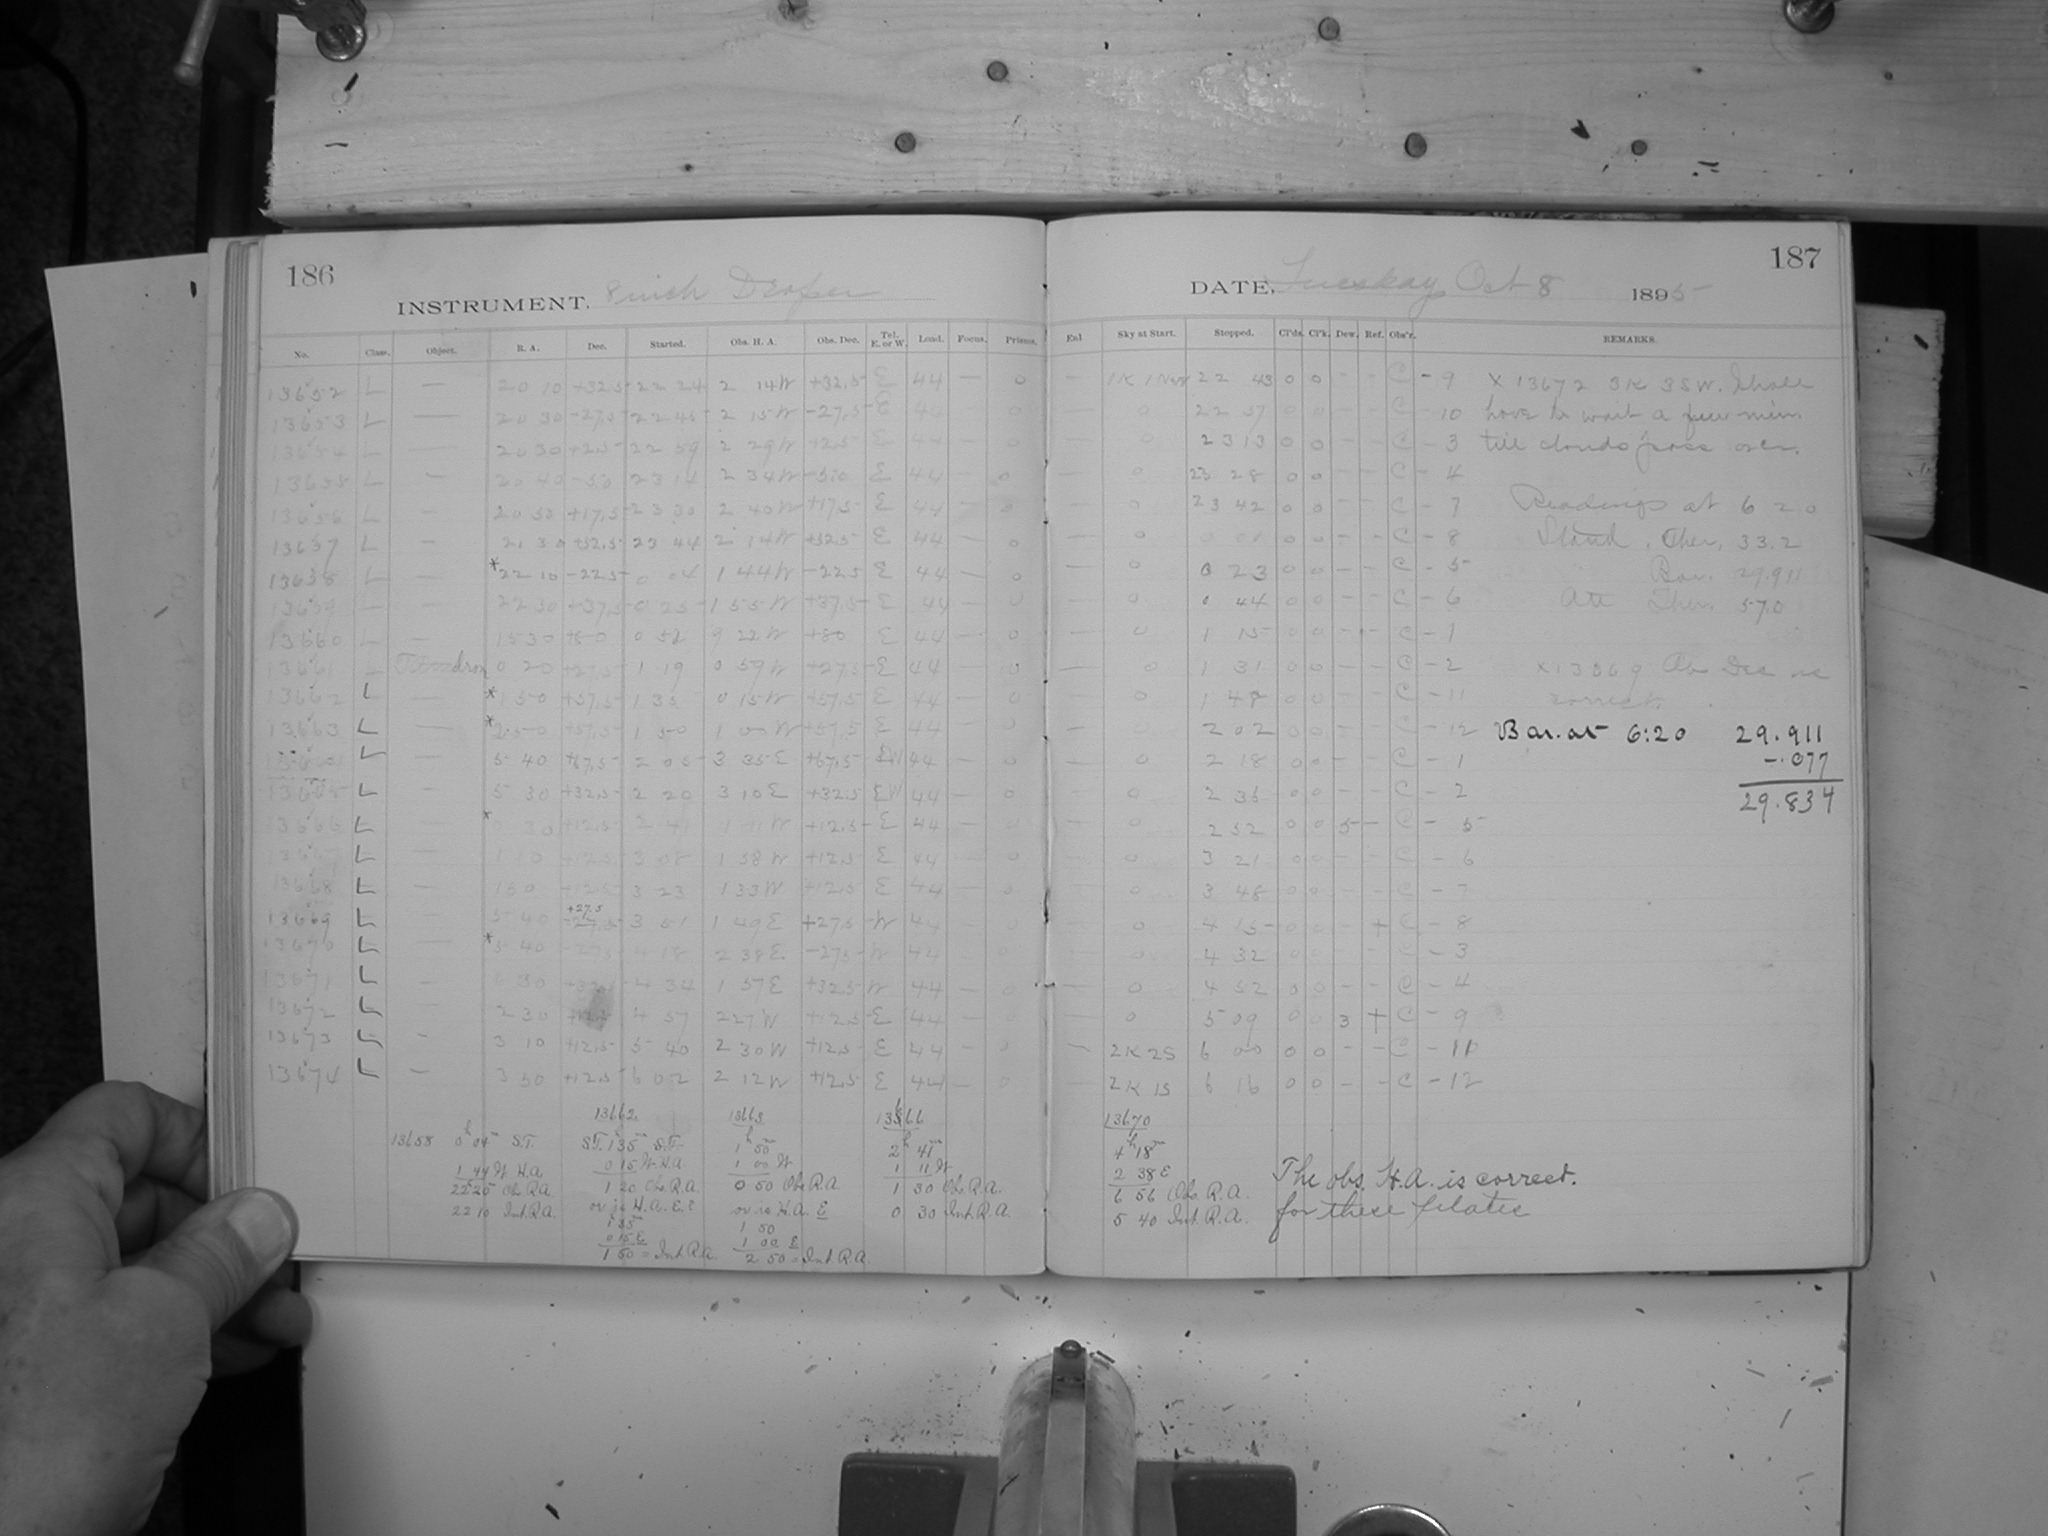 186
INSTRUMENT. 8 inch Draper
No. Class. Object. R. A. Dec. Started. Obs. H. A. Obs. Dec. Tel. E. or W. Load. Focus. Prisms.
13652 L — 20 10 +32.5 22 24 2 14W +32.5 E 44 — 0
13653 L — 20 30 -27.5 22 45 2 15W -27.5 E 44 — 0
13654 L — 20 30 +2.5 22 59 2 29W +2.5 E 44 — 0
13655 L — 20 40 23 14 2 34W E 44 — 0
13656 L — 20 50 +17.5 23 30 2 40W +17.5 E 44 — 0
13657 L — 21 30 +32.5 23 44 2 14W +32.5 E 44 — 0
13658 L — *22 10 -22.5 0 04 1 44W -22.5 E 44 — 0
13659 — — 22 30 +37.5 0 25 1 55W +37.5 E 44 — 0
13660 L — 15 30 +80 0 52 9 22W +80 E 44 — 0
13661 L 0 20 +27.5 1 19 0 59W +27.5 E 44 — 0
13662 L — *1 50 +57.5 1 35 0 15W +57.5 E 44 — 0
13663 L — *2 50 +57.5 1 50 1 00W +57.5 E 44 — 0
13664 L — 5 40 +67.5 2 05 3 35E +67.5 W 44 — 0
13665 L — 5 30 +32.5 2 20 3 10E +32.5 W 44 — 0
13666 L — * 30 +12.5 2 41 1 11W +12.5 E 44 — 0
13667 L — 1 10 +12.5 3 08 1 58W +12.5 E 44 — 0
13668 L — 1 50 +12.5 3 23 1 33W +12.5 E 44 — 0
13669 L — 5 40 +27.5 -27.5 3 51 1 49E +27.5 W 44 — 0
13670 L — *5 40 -27.5 4 18 2 38E -27.5 W 44 — 0
13671 L — 6 30 +32.5 4 34 1 57E +32.5 W 44 — 0
13672 L — 2 30 4 57 2 27W +12.5 E 44 — 0
13673 L — 3 10 +12.5 5 40 2 30W +12.5 E 44 — 0
13674 L — 3 50 +12.5 6 02 2 12W +12.5 E 44 — 0
13658 0h 04m S.T.
1 44 W H.A.
22 20 Ob. R.A.
22 10 Int. R.A.
13662
S.T. 1h 35m S.T.
0 15 W. H.A.
1 20 Ob. R.A.
or is H.A. E.?
1 35m
0 15 E
1 50 = Int. R.A.
13663
1h 50m
1 00 W
0 50 Ob. R.A.
or is H.A. E
1 50
1 00 E
2 50 = Int. R.A.
13666
2h 41m
1 11 W
1 30 Ob. R.A.
0 30 Int. R.A.
187
DATE, Tuesday Oct 8 1895
Enl Sky at Start. Stopped. Cl'ds. Cl'k. Dew. Ref. Obs'r. REMARKS.
— 22 43 0 0 - - C - 9 X 13672 3K 3SW. Shall
— 0 22 57 0 0 - - C - 10 have to wait a few min.
— 0 23 13 0 0 - - C - 3 till clouds pass over.
— 0 23 28 0 0 - - C - 4
— 0 23 42 0 0 - - C - 7 Readings at 6 20
— 0 0 0 - - C - 8 Stand. Ther. 33.2
— 0 0 23 0 0 - - C - 5 Bar. 29.911
— 0 0 44 0 0 - - C - 6 Att Ther. 57.0
— 0 1 15 0 0 - - C - 1
— 0 1 31 0 0 - - C - 2 X 13669 Ob Dec is
— 0 1 48 0 0 - - C - 11 correct.
— 0 2 02 0 0 - - C - 12 Bar. at 6:20 29.911
— 0 2 18 0 0 - - C - 1 -.077
— 0 2 36 0 0 - - C - 2 29.834
— 0 2 52 0 0 5 - C - 5
— 0 3 21 0 0 - - C - 6
— 0 3 48 0 0 - - C - 7
— 0 4 15 0 0 - + C - 8
— 0 4 32 0 0 - - C - 3
— 0 4 52 0 0 - - C - 4
— 0 5 09 0 0 3 + C - 9
— 2K 2S 6 00 0 0 - - C - 10
— 2K 1S 6 16 0 0 - - C - 12
13670
4h 18m
2 38 E
6 56 Ob. R.A.
5 40 Int. R.A.
The obs. H.A. is correct.
for these plates